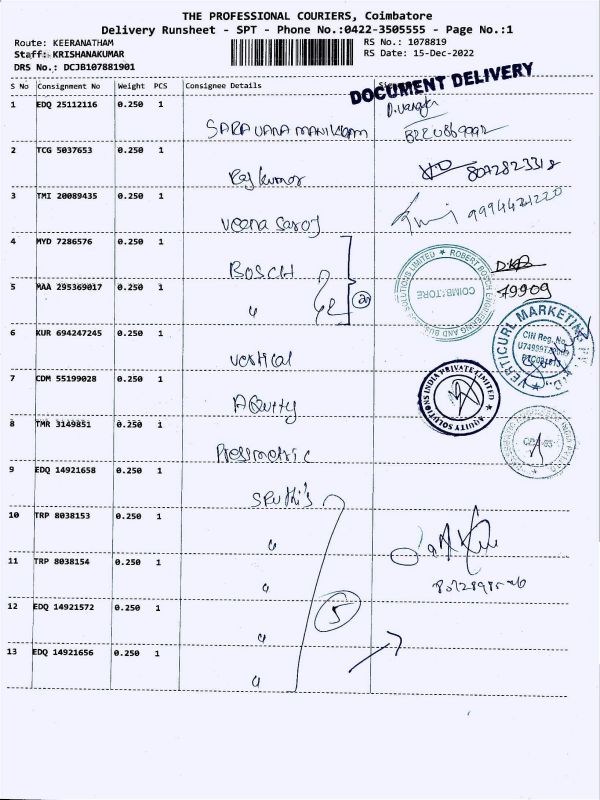 THE PROFESSIONAL COURIERS, Coimbatore
Delivery Runsheet - SPT - Phone No.:0422-3505555 - Page No.:1
Route: KEERANATHAM
RS No.: 1078819
Staff: KRISHANAKUMAR
RS Date: 15-Dec-2022
DRS No.: DCJB107881901
DOCUMENT DELIVERY
S No Consignment No Weight PCS Consignee Details
1 EDQ 25112116 0.250 1
SARAVANA MANIKDAM
2 TCG 5037653 0.250 1
Rajkumar 8072823318
3 TMI 20089435 0.250 1
Veena Saroj
4 MYD 7286576 0.250 1
BOSCH
5 MAA 295369017 0.250 1
" 49909
ROBERT BOSCH ENGINEERING AND BUSINESS SOLUTIONS LIMITED
COIMBATORE
6 KUR 694247245 0.250 1
Vertical
VERTICURL MARKETING PVT. LTD.
CIN Reg. No.
7 CDM 55199028 0.250 1
AQuity
AQUITY SOLUTIONS INDIA PRIVATE LIMITED
8 TMR 3149851 0.250 1
Presmetric
9 EDQ 14921658 0.250 1
Sruthi's
10 TRP 8038153 0.250 1
"
11 TRP 8038154 0.250 1
"
12 EDQ 14921572 0.250 1
" 5
13 EDQ 14921656 0.250 1
"